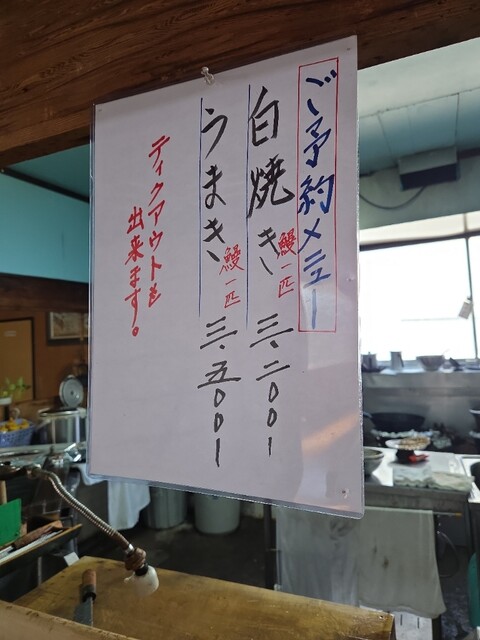 ご予約メニュー
白焼き 鰻一匹 三.二〇〇ー
うまき 鰻一匹 三.五〇〇ー
テイクアウトも
出来ます。